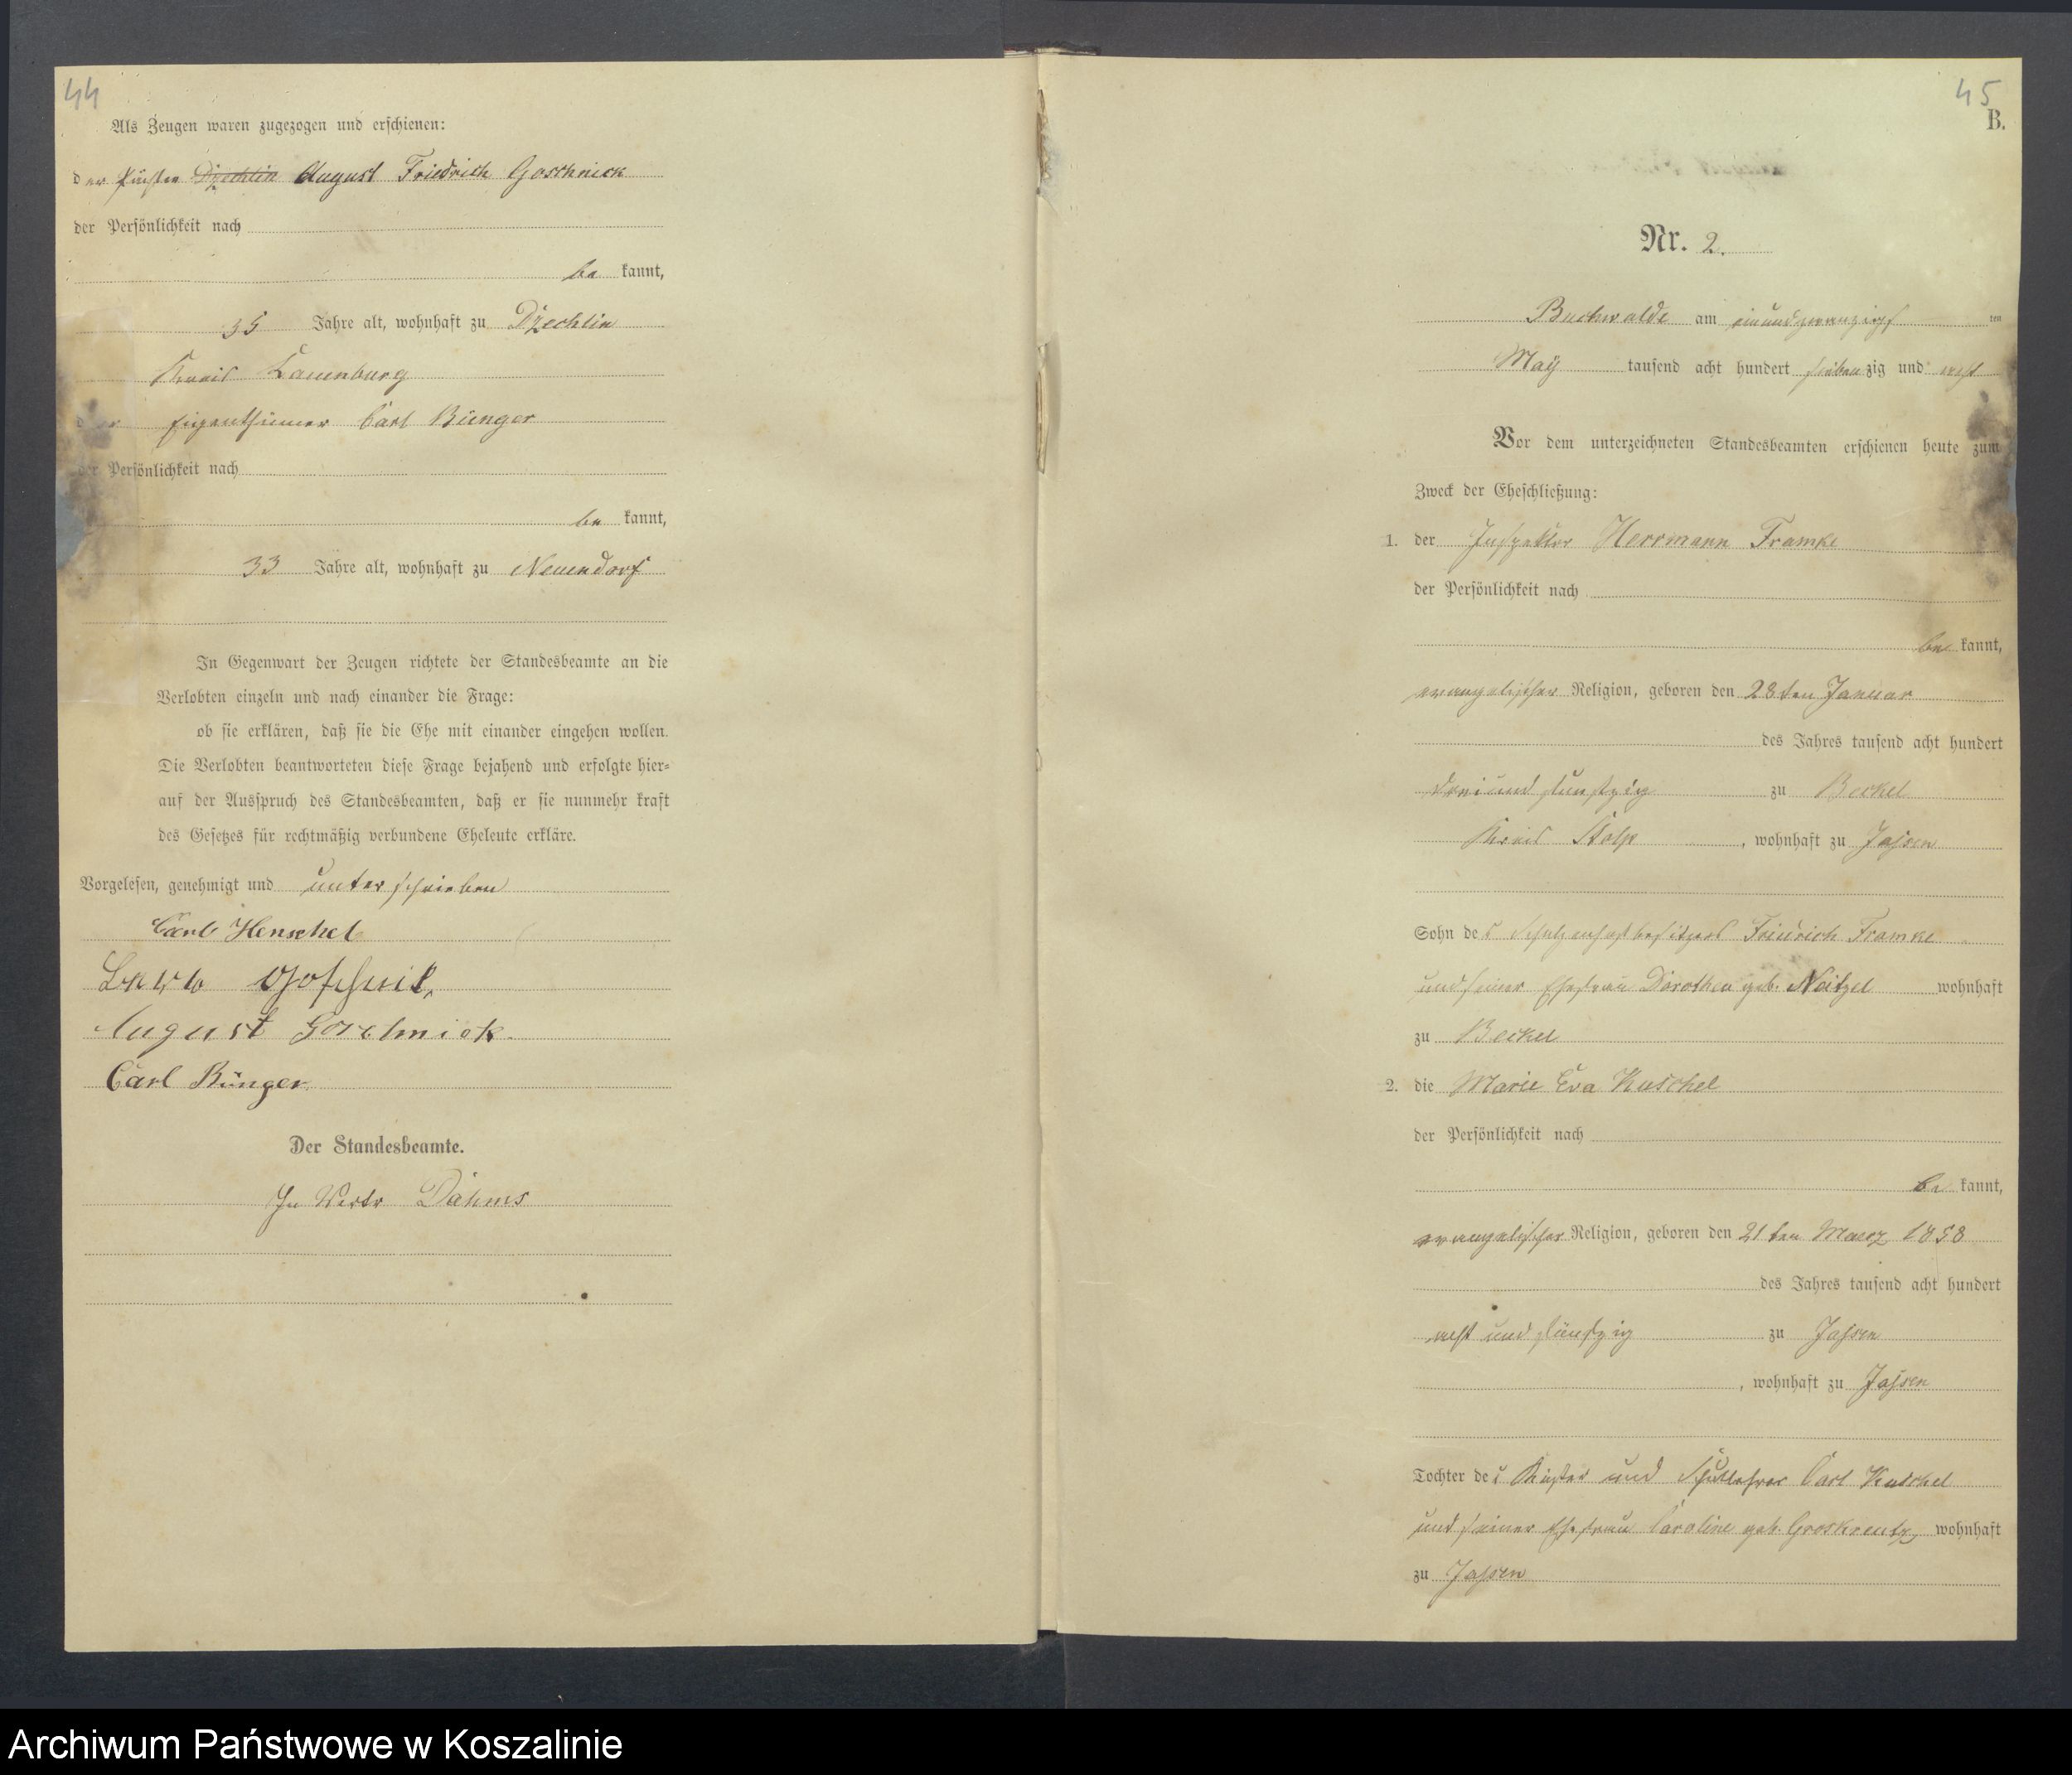 44
Als Zeugen waren zugezogen und erschienen:
der Küster Dzechlin August Friedrich Goschnick
der Persönlichkeit nach
be kannt,
35 Jahre alt, wohnhaft zu Dzechlin
Kreis Lauenburg
der Eigenthümer Carl Bünger
der Persönlichkeit nach
be kannt,
33 Jahre alt, wohnhaft zu Neuendorf
In Gegenwart der Zeugen richtete der Standesbeamte an die
Verlobten einzeln und nach einander die Frage:
ob sie erklären, daß sie die Ehe mit einander eingehen wollen.
Die Verlobten beantworteten diese Frage bejahend und erfolgte hier-
auf der Ausspruch des Standesbeamten, daß er sie nunmehr kraft
des Gesetzes für rechtmäßig verbundene Eheleute erkläre.
Vorgelesen, genehmigt und unterschrieben
Carl Henschel
Goschnik
August Goschnick
Carl Bünger
Der Standesbeamte.
In Vertr Dahms
45
B.
Nr. 2.
Buchwalde am einundzwanzigs ten
May tausend acht hundert siebenzig und acht
Vor dem unterzeichneten Standesbeamten erschienen heute zum
Zweck der Eheschließung:
1. der Inspektor Herrmann Framke
der Persönlichkeit nach
be kannt,
evangelischer Religion, geboren den 28ten Januar
des Jahres tausend acht hundert
dreiundfunfzig zu Beckel
Kreis Stolp, wohnhaft zu Jassen
Sohn des Schulzenhofbesitzers Friedrich Framke
und seiner Ehefrau Dorothea geb. Neitzel wohnhaft
zu Beckel
2. die Marie Eva Kuschel
der Persönlichkeit nach
be kannt,
evangelischer Religion, geboren den 21ten Maerz 1858
des Jahres tausend acht hundert
acht und fünfzig zu Jassen
, wohnhaft zu Jassen
Tochter des Küster und Schullehrer Carl Kuschel
und seiner Ehefrau Caroline geb. Groskreutz, wohnhaft
zu Jassen
Archiwum Państwowe w Koszalinie